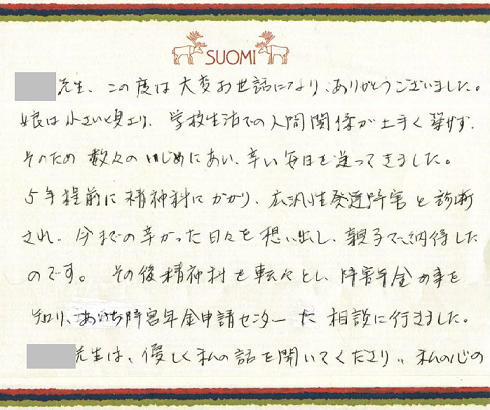 SUOMI
先生、この度は大変お世話になり、ありがとうございました。
娘は小さい頃より、学校生活での人間関係が上手く築けず、
そのため数々のいじめにあい、辛い毎日を送ってきました。
5年程前に精神科にかかり、広汎性発達障害と診断
され、今までの辛かった日々を想い出し、親子で納得した
のです。その後精神科を転々とし、障害年金の事を
知り、あいち障害年金申請センターに相談に行きました。
先生は、優しく私の話を聞いてくださり、私の心の